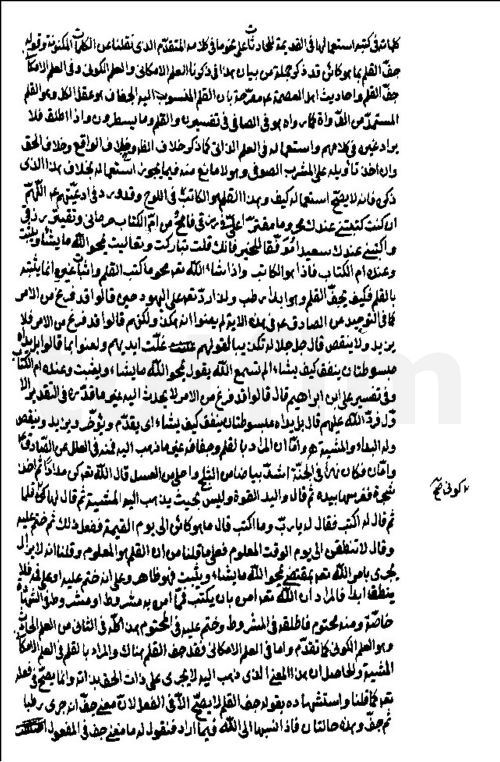 كلماته في كتبه استعمالها في القديمة للحادث على نحو ما في كلامه المتقدم الذي نقلنا عن الكلمات المكنونة وقوله
جف القلم بما هو كائن قد ذكر جملة من بيان هذا في ذكرنا العلم الامكاني والعلم الكوني وفي العلم الامكاني
جف القلم واحاديث اهل العصمة مصرحة بان القلم المنسوب اليه الجفاف هو عقل الكل وهو القلم
المستمد من الدواة كما رواه هو في الصافي في تفسير ن والقلم وما يسطرون واذا اطلق فلا
يراد غير في كلامهم واستعماله في العلم الذاتي كما ذكر خلاف الفهم وخلاف الواقع وخلاف الحق
وان اخذ تأويله على المشرب الصوفي وهو لا مانع منه فيما يجوز استعماله بخلاف هذا الذي
ذكر فانه لا يصح استعماله كيف وهذا القلم هو الكاتب في اللوح وقد ورد في ادعيتهم اللهم
ان كنت كتبتني عندك محروما مقترا علي في رزقي فامح من ام الكتاب حرماني وتقتير رزقي
واكتبني عندك سعيدا موفقا للخير فانك قلت تباركت وتعاليت يمحو الله ما يشاء ويثبت
وعنده ام الكتاب فاذا هو الكاتب واذا شاء الله تعالى محو ما كتب القلم واثبات غير انما يثبته
بالقلم فكيف يجف القلم وهو ابدا رطب ولذا رد تعالى على اليهود حين قالوا قد فرغ من الامر
كما في التوحيد عن الصادق في هذه الاية لم يعنوا انه هكذا ولكنهم قالوا قد فرغ من الامر فلا
يزيد ولا ينقص قال جل جلاله تكذيبا لقولهم غلت ايديهم ولعنوا بما قالوا بل يداه
مبسوطتان ينفق كيف يشاء الم تسمع الله يقول يمحو الله ما يشاء ويثبت وعنده ام الكتاب
وفي تفسير علي بن ابراهيم قال قالوا قد فرغ من الامر لا يحدث الله غير ما قدره في التقدير الا
ول فرد الله عليهم قال بل يداه مبسوطتان ينفق كيف يشاء اي يقدم ويؤخر ويزيد وينقص
وله البداء والمشية واما ان المراد بالقلم وجفافه غير ما ذهب اليه فمنه في العلل عن الصادق
واما ن فكان نهرا في الجنة اشد بياضا من الثلج واحلى من العسل قال الله تعالى كن مدادا ثم اخذ
شجرة فغرسها بيده ثم قال واليد القوة وليس بحيث يذهب اليه المشبهة ثم قال لها كوني قلما
ثم قال له اكتب فقال له يا رب وما اكتب قال ما هو كائن الى يوم القيمة ففعل ذلك ثم ختم عليه
وقال لا تنطقن الى يوم الوقت المعلوم فعلى ما قلنا من ان القلم هو المعلوم وقلنا انه لا يزال
يجري بامر الله تعالى بمقتضى يمحو الله ما يشاء ويثبت فهو ظاهر وعلى انه ختم عليه او على فمه فلا
ينطق ابدا فالمراد ان الله تعالى امره بان يكتب فما امره به مشروط او مشروط في الشهادة
خاصة ومنه محتوم فاطلقه في المشروط وختم عليه في المحتوم هذا كله في الثاني من العلم الحادث
وهو العلم الكوني كما تقدم واما في العلم الامكاني فقد جف القلم هناك والمراد بالقلم في العلم الامكاني
المشية والحاصل ان هذا المعنى الذي ذهب اليه لا يجري على ذات الحق بذاته وانما يصح في فعله
تعالى كما قلنا واستشهاده بقوله جف القلم لا يصح الا في الفعل لان معنى جف انه جرى رطبا
ثم جف وهذه حالتان فاذا نسبها الى الله فيما اراد فنقول له ما معنى جف في المفعول